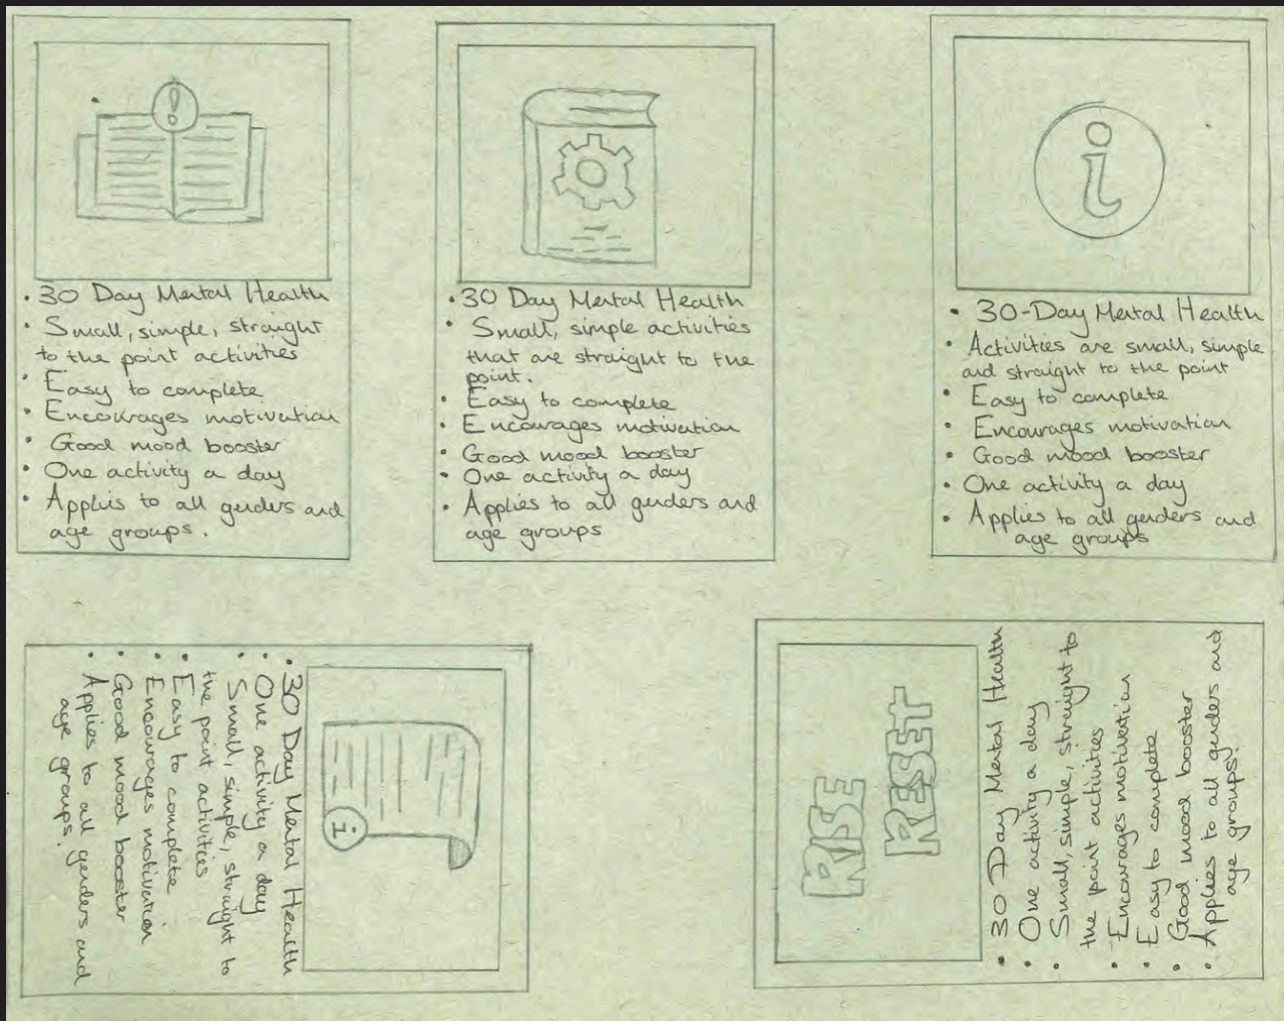 !
• 30 Day Mental Health
• Small, simple, straight
to the point activities
• Easy to complete
• Encourages motivation
• Good mood booster
• One activity a day
• Applies to all genders and
age groups.
• 30 Day Mental Health
• Small, simple activities
that are straight to the
point.
• Easy to complete
• Encourages motivation
• Good mood booster
• One activity a day
• Applies to all genders and
age groups
i
• 30-Day Mental Health
• Activities are small, simple
and straight to the point
• Easy to complete
• Encourages motivation
• Good mood booster
• One activity a day
• Applies to all genders and
age groups
i
• 30 Day Mental Health
• One activity a day
• Small, simple, straight to
the point activities
• Easy to complete
• Encourages motivation
• Good mood booster
• Applies to all genders and
age groups.
RISE
RESET
• 30 Day Mental Health
• One activity a day
• Small, simple, straight to
the point activities
• Encourages motivation
• Easy to complete
• Good mood booster
• Applies to all genders and
age groups.